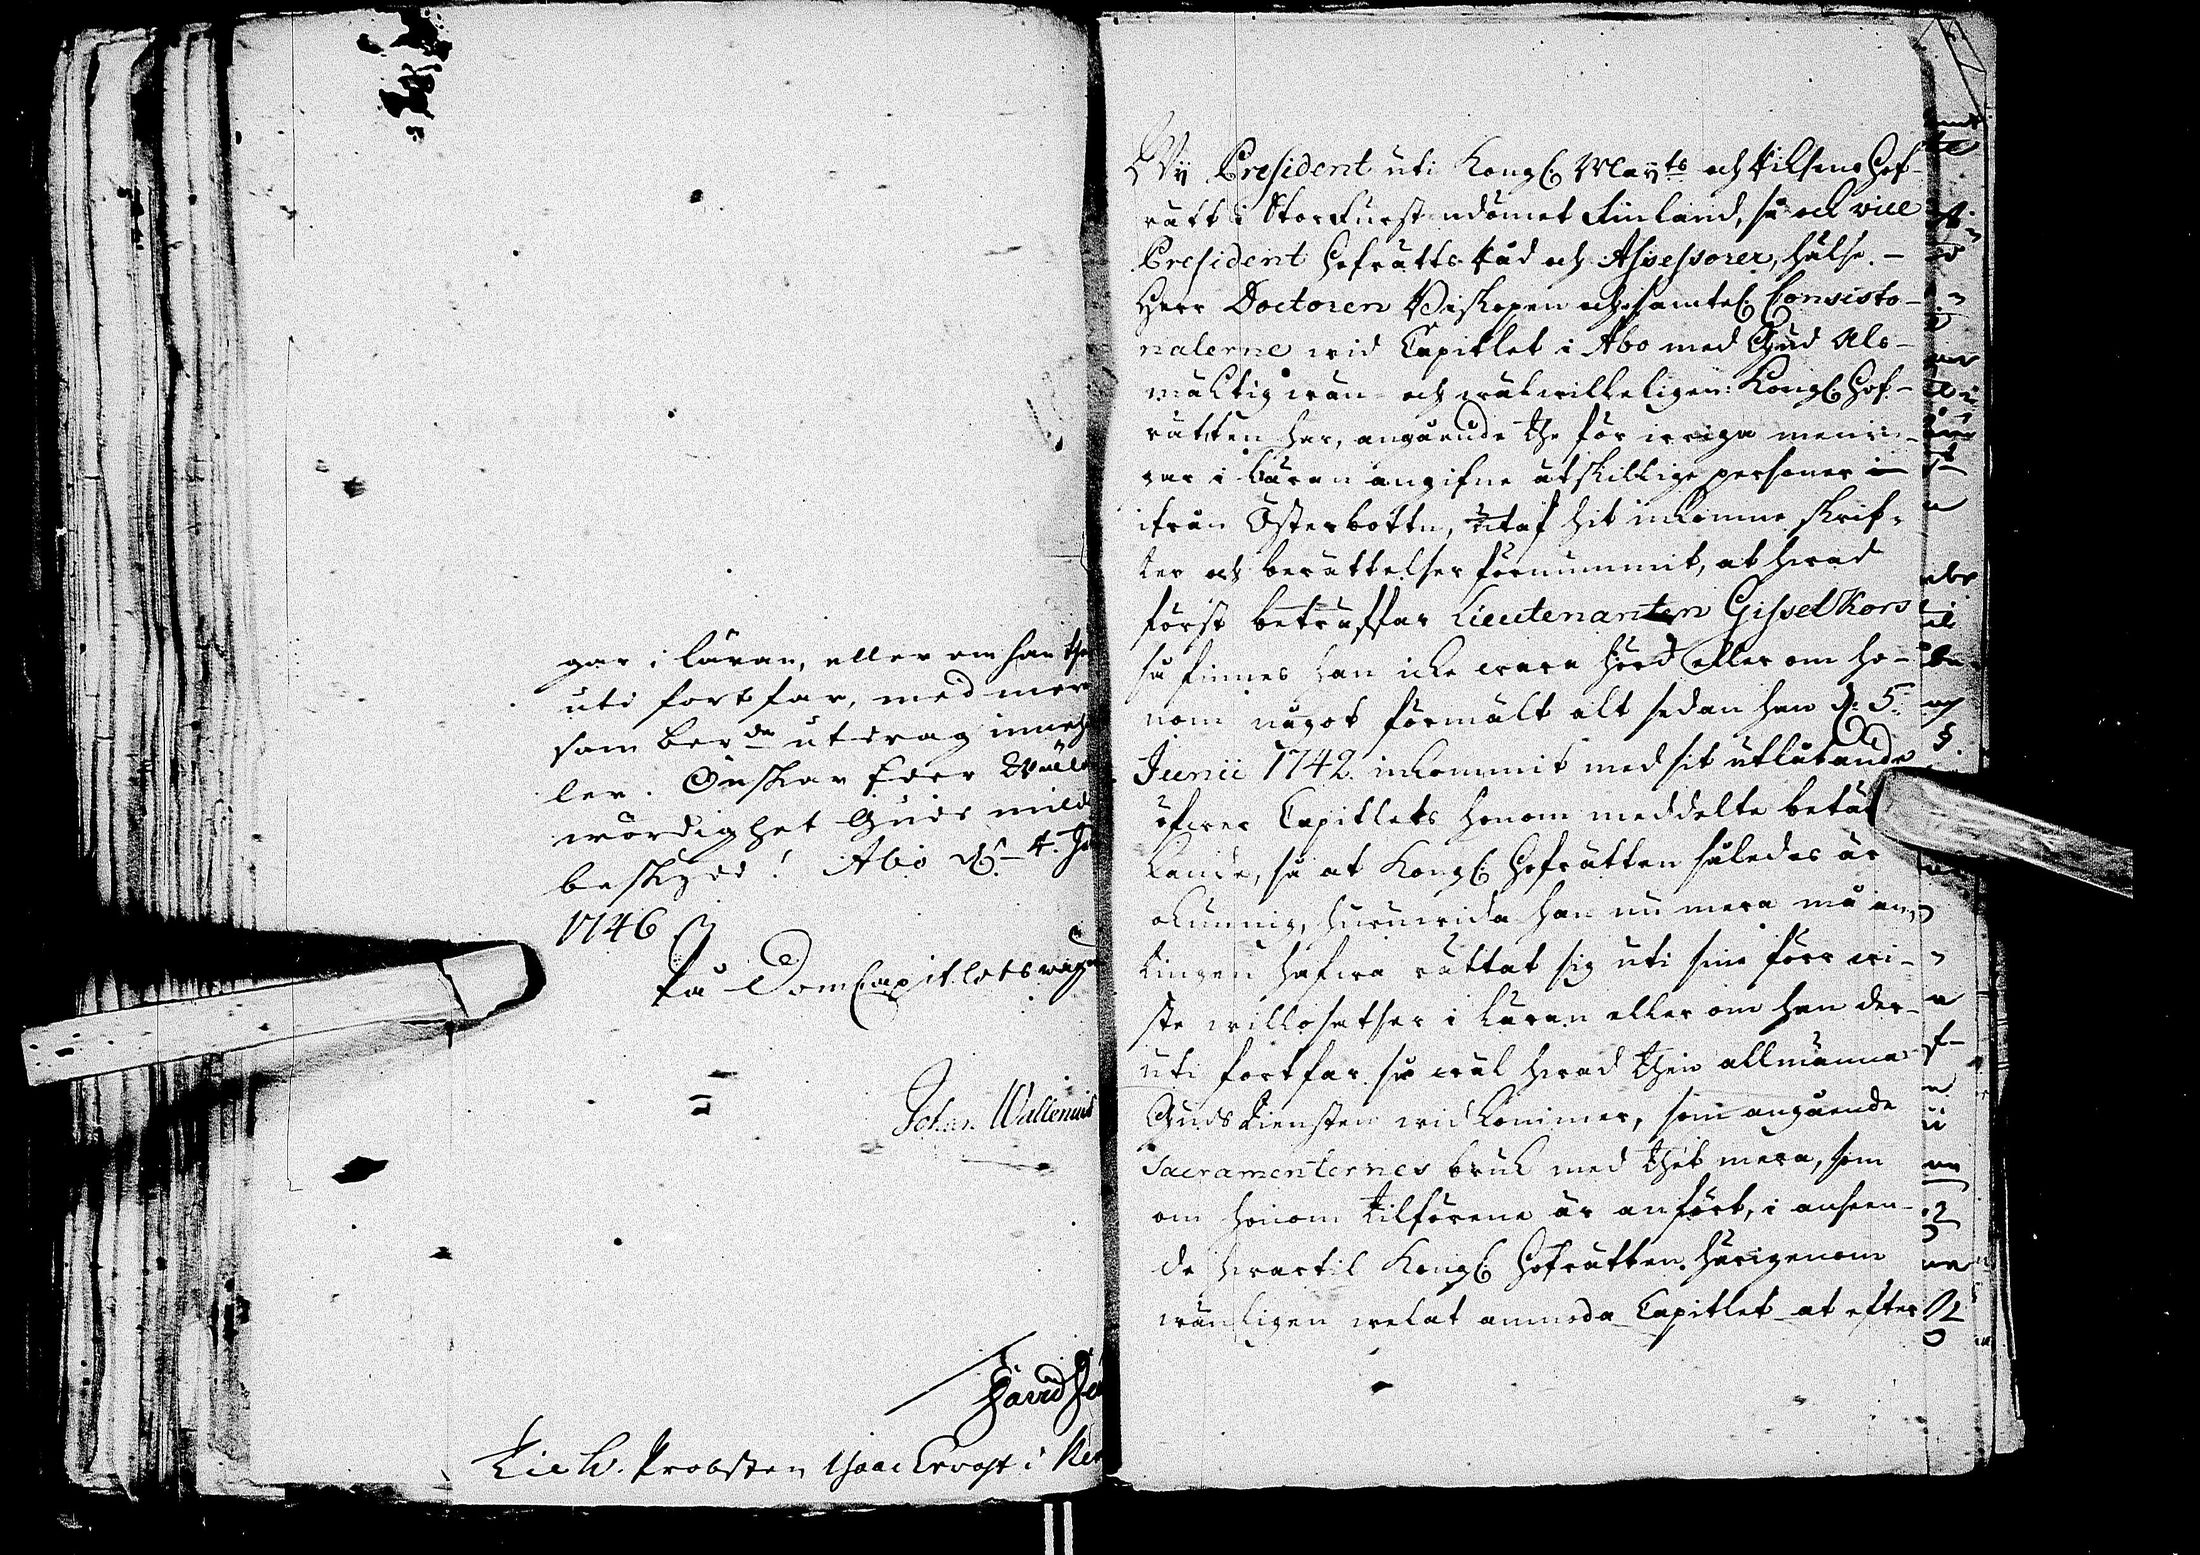 gar i läran, eller om han ther
uti fortfar, med mera
som ber:de utdrag innehål
ler. Önskar Eder Wäll
wördighet Guds milda
beskydd! Åbo d. 4. Ju
1746
På DomCapitlets wägn
Johan Wallenius
David
Til H. Probsten Isaac Ervast i
Wij President uti Kongl: Maij:ts och Riksens Hof-
rätt i StorFurstendömet Finland, så ock vice
President Hofrätts Råd och Assessorer, hälse
Herr Doctoren Biskopen och samtel: Consisto-
rialerne wid Capitlet i Åbo med Gud Als-
mäktig wän- och wälwilleligen: Kongl: Hof-
rätten har, angående the för irriga menin-
gar i läran angifne åtskillige personer i
ifrån Österbottn, utaf hit inkomne skrif-
ter och berättelser förnummit, at hwad
först beträffar Lieutenanten Gisselkors
så finnes han icke wara hörd eller om ho-
nom något förmält alt sedan han d. 5.
Junii 1742. inkommit med sit utlåtande
öfwer Capitlets honom meddelte betän
kande, så at Kongl: Hofrätten således är
okunnig, huruwida han nu mera må an-
tingen hafwa rättat sig uti sine förr wi-
ste willosatser i läran eller om han der-
uti fortfar så wäl hwad then allmänna
Gudstiensten widkommer, som angående
Sacramenternes bruk med thet mera, som
om honom tilförene är anfört, i anseen-
de hwartil Kongl: Hofrätten härigenom
wänligen welat anmoda Capitlet at efter